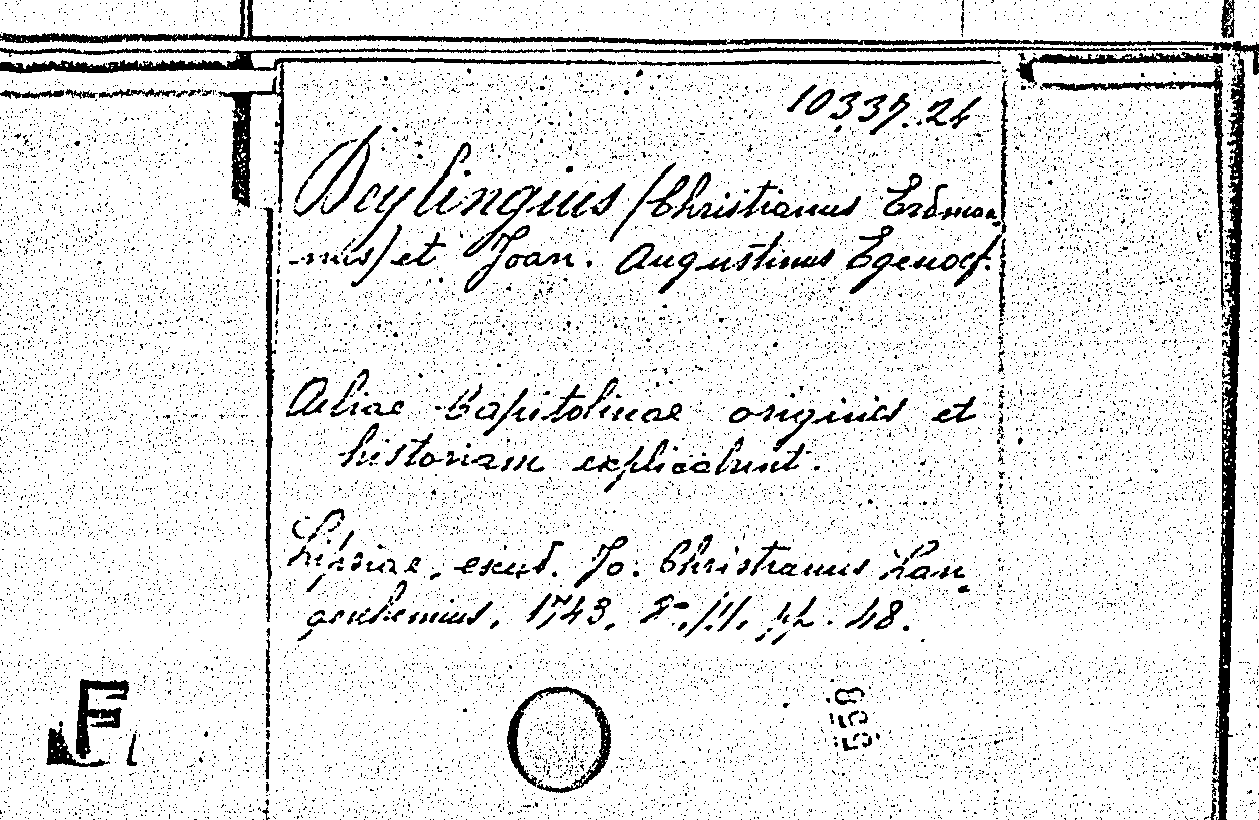 10337.24
Deylingius (Christianus Erdman-
-nus) et Joan. Augustinus Egenolf.
Aeliae Capitolinae origines et
historiam explicabunt.
Lipsiae, excud. Jo. Christianus Lan-
genhemius, 1743, 8º, pp. 48.
558
F